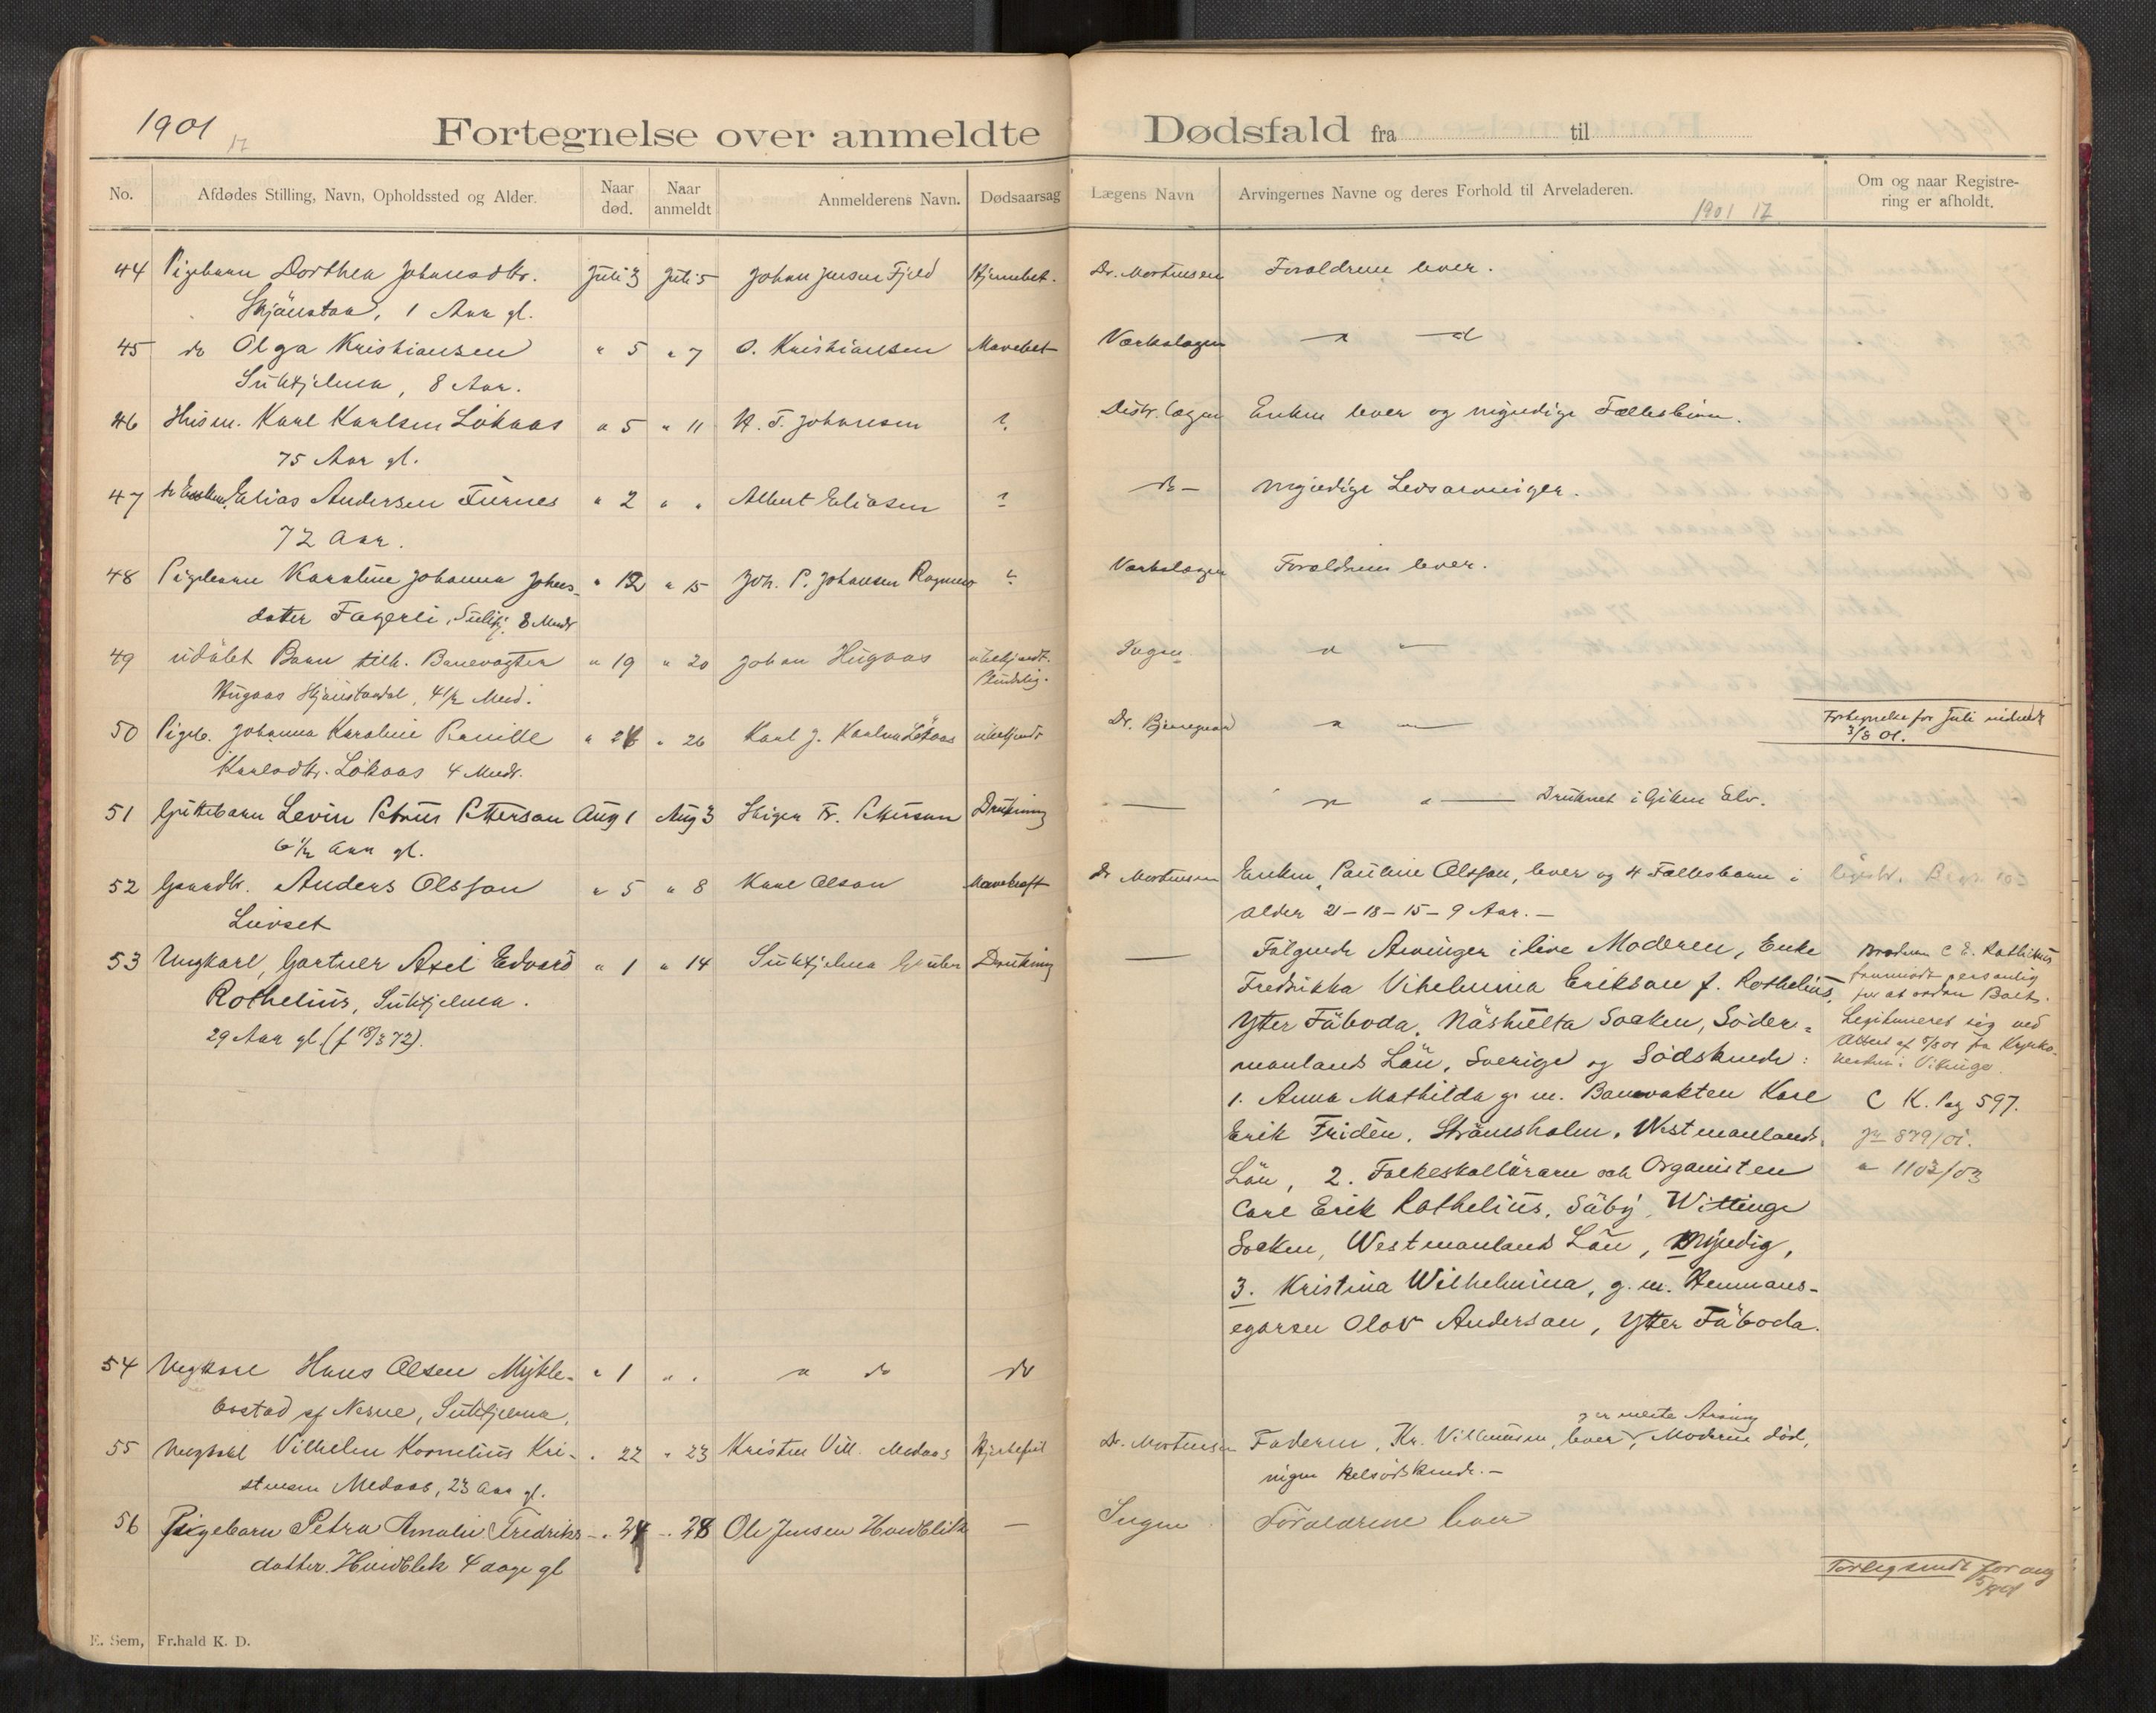 1901
17
Fortegnelse over anmeldte Dødsfald fra til
No. Afdødes Stilling, Navn, Opholdssted og Alder. Naar død. Naar anmeldt Anmelderens Navn. Dødsaarsag Lægens Navn Arvingernes Navne og deres Forhold til Arveladeren. Om og naar Registrering er afholdt.
1901 17
44 Pigebarn Dorthea Johansdtr. Juli 3 Juli 5 Johan Jensen Fjeld Hjernebet. Dr. Mortensen Forældrene lever.
Skjönstaa, 1 Aar gl.
45 do Olga Kristiansen " 5 " 7 O. Kristiansen Mavebet Værkslægen " "
Sulitjelma, 8 Aar.
46 Husm. Karl Karlsen Lökaas " 5 " 11 H. F. Johansen ? Distr. lægen Enken lever og myndige Fællesbörn.
75 Aar gl.
47 Elias Andersen Furnes " 2 " " Albert Eliasen ? do - Myndige Livsarvinger.
72 Aar.
48 Pigebarn Karoline Johanna Johns- " 12 " 15 Joh. P. Johansen Værkslægen Forældrene lever.
datter Fagerli, Sulitj. 8 Mndr
49 udöbt Barn tilh. Banevogter " 19 " 20 Johan Hugaas ubekjendt. Ingen " "
Hugaas Skjönstaadal, 4½ Mnd. Pludselig.
50 Pigeb. Johanna Karoline Pernille " 26 " 26 Karl J. Karlsen Lökaas ubekjendt Dr. Bjerregaard " "
Karlsdtr. Lökaas 4 Mndr.
Fortegnelse for Juli indsendt
3/8 01.
51 Guttebarn Levin Petrus Petterson Aug 1 Aug 3 Stiger Fr. Petterson Drukning — " " Druknet i Giken Elv.
6½ Aar gl.
52 Gaardbr. Anders Olsson " 5 " 8 Karl Olson Mavekræft Dr Mortensen Enken, Pauline Olsson, lever og 4 Fællesbarn i
Luvset alder 21 - 18 - 15 - 9 Aar. -
53 Ungkarl, Gartner Axel Edvard " 1 " 14 Sulitjelma Gruber Drukning — Fölgende Arvinger i live Moderen, Enke
Rothelius, Sulitjelma.
29 Aar gl. (f 18/3 72).
Fredrikka Vihelmina Erikson f. Rothelius,
Ytter Fäboda, Näshulta Socken, Söder-
manlands Län, Sverige og Södskende:
1. Anna Mathilda g. m. Banvakten Karl
Erik Fridèn, Strömsholm, Westmanlands
Län, 2. Folkeskolläraren och Organisten
Carl Erik Rothelius, Säby, Wittinge
Socken, Westmanlands Län, Myndig,
3. Kristina Wilhelmina, g. m. Hemmans-
egaren Olov Anderson, Ytter Fäboda.
Broderen C E. Rothelius
fremmödt personlig
for at ordne Boet.
Legitimeret sig ved
Attest af fra Kyrko-
herden i Vittinge.
C K. Pag 597.
Jn 879/01.
" 1103/03
54 Ungkarl Hans Olsen Mykle- " 1 " " " do do
bostad af Nesne, Sulitjelma.
55 Ungkarl Vilhelm Kornelius Kri- " 22 " 23 Kristen Vill. Medaas Hjertefeil Dr. Mortensen Faderen, Kr. Villumsen, lever, Moderen död,
og er eneste Arving
stensen Medaas, 23 Aar gl. ingen Helsödskende. -
56 Pigebarn Petra Amalie Fredriks- " 24 " 28 Ole Jensen Hvidblik — Ingen Forældrene lever
datter. Hvidblik 4 dage gl
Forteg sendt for aug
E. Sem, Fr.hald K. D.